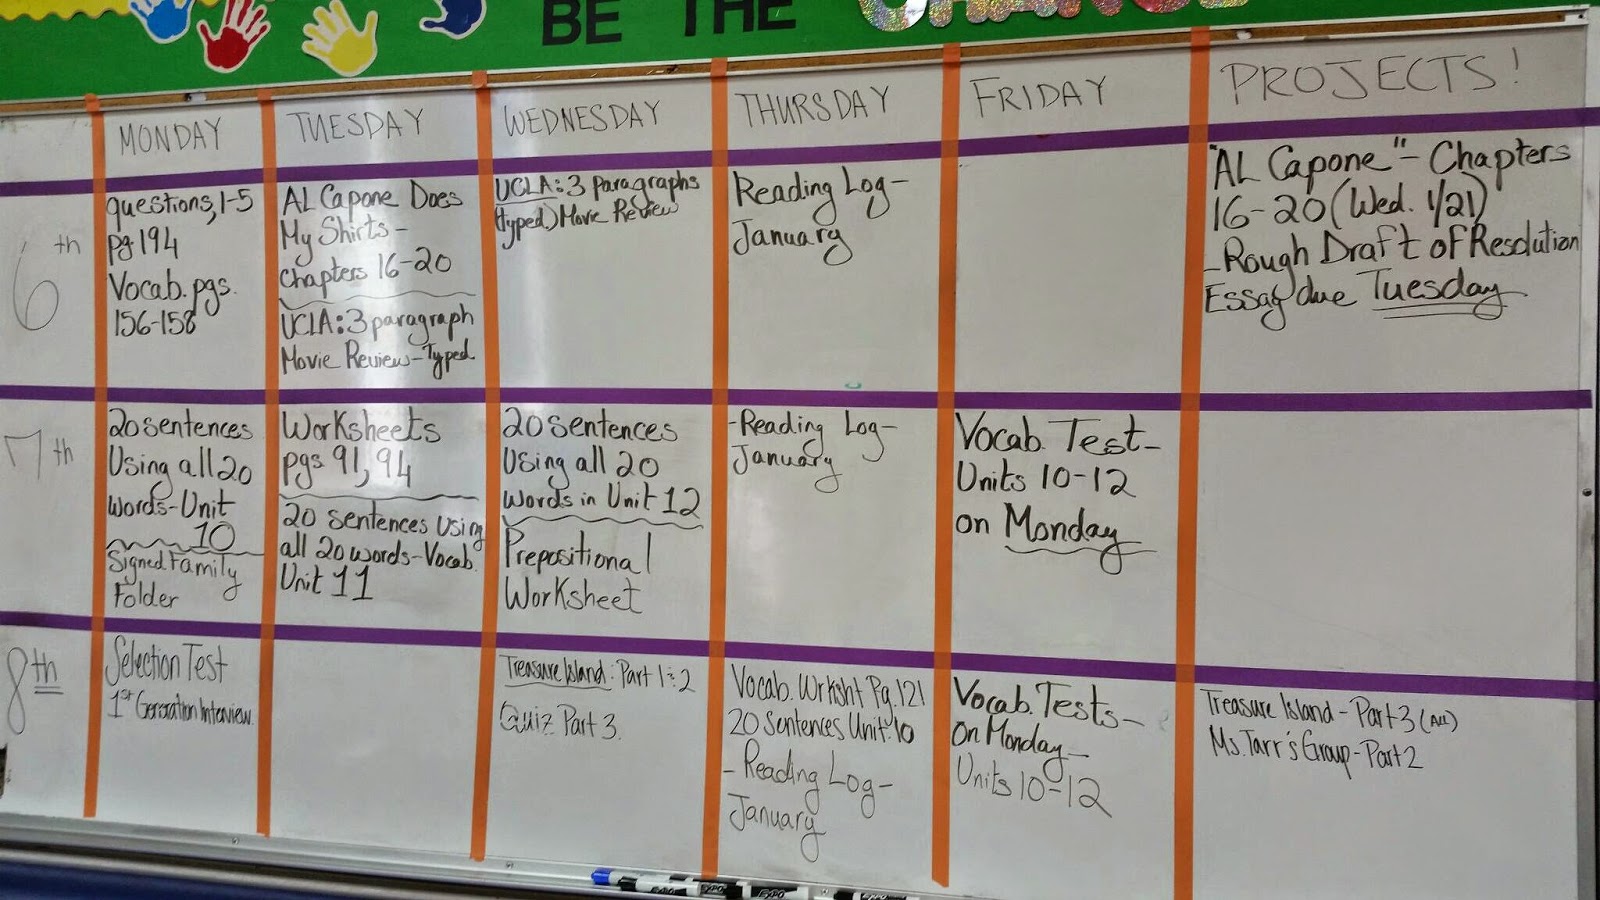 BE THE CHANGE
MONDAY
TUESDAY
WEDNESDAY
THURSDAY
FRIDAY
PROJECTS!
6th
questions, 1-5
pg 194
Vocab. pgs.
156-158
AL Capone Does
My Shirts-
Chapters 16-20
UCLA: 3 paragraph
Movie Review-Typed
UCLA: 3 Paragraphs
(typed) Movie Review
Reading Log-
January
"AL Capone"- Chapters
16-20 (Wed. 1/21)
-Rough Draft of Resolution
Essay due Tuesday
7th
20 sentences
Using all 20
words-Unit
10
Signed Family
Folder
Worksheets
pgs 91, 94
20 sentences using
all 20 words-Vocab.
Unit 11
20 sentences
Using all 20
words in Unit 12
Prepositional
Worksheet
-Reading Log-
January
Vocab. Test-
Units 10-12
on Monday
8th
Selection Test
1st Generation Interview
Treasure Island: Part 1 & 2
Quiz Part 3.
Vocab. Wrksht Pg. 121
20 Sentences Unit: 10
-Reading Log-
January
Vocab. Tests-
on Monday-
Units 10-12
Treasure Island - Part 3 (All)
Ms. Tarr's Group-Part 2
EXPO
EXPO
EXPO